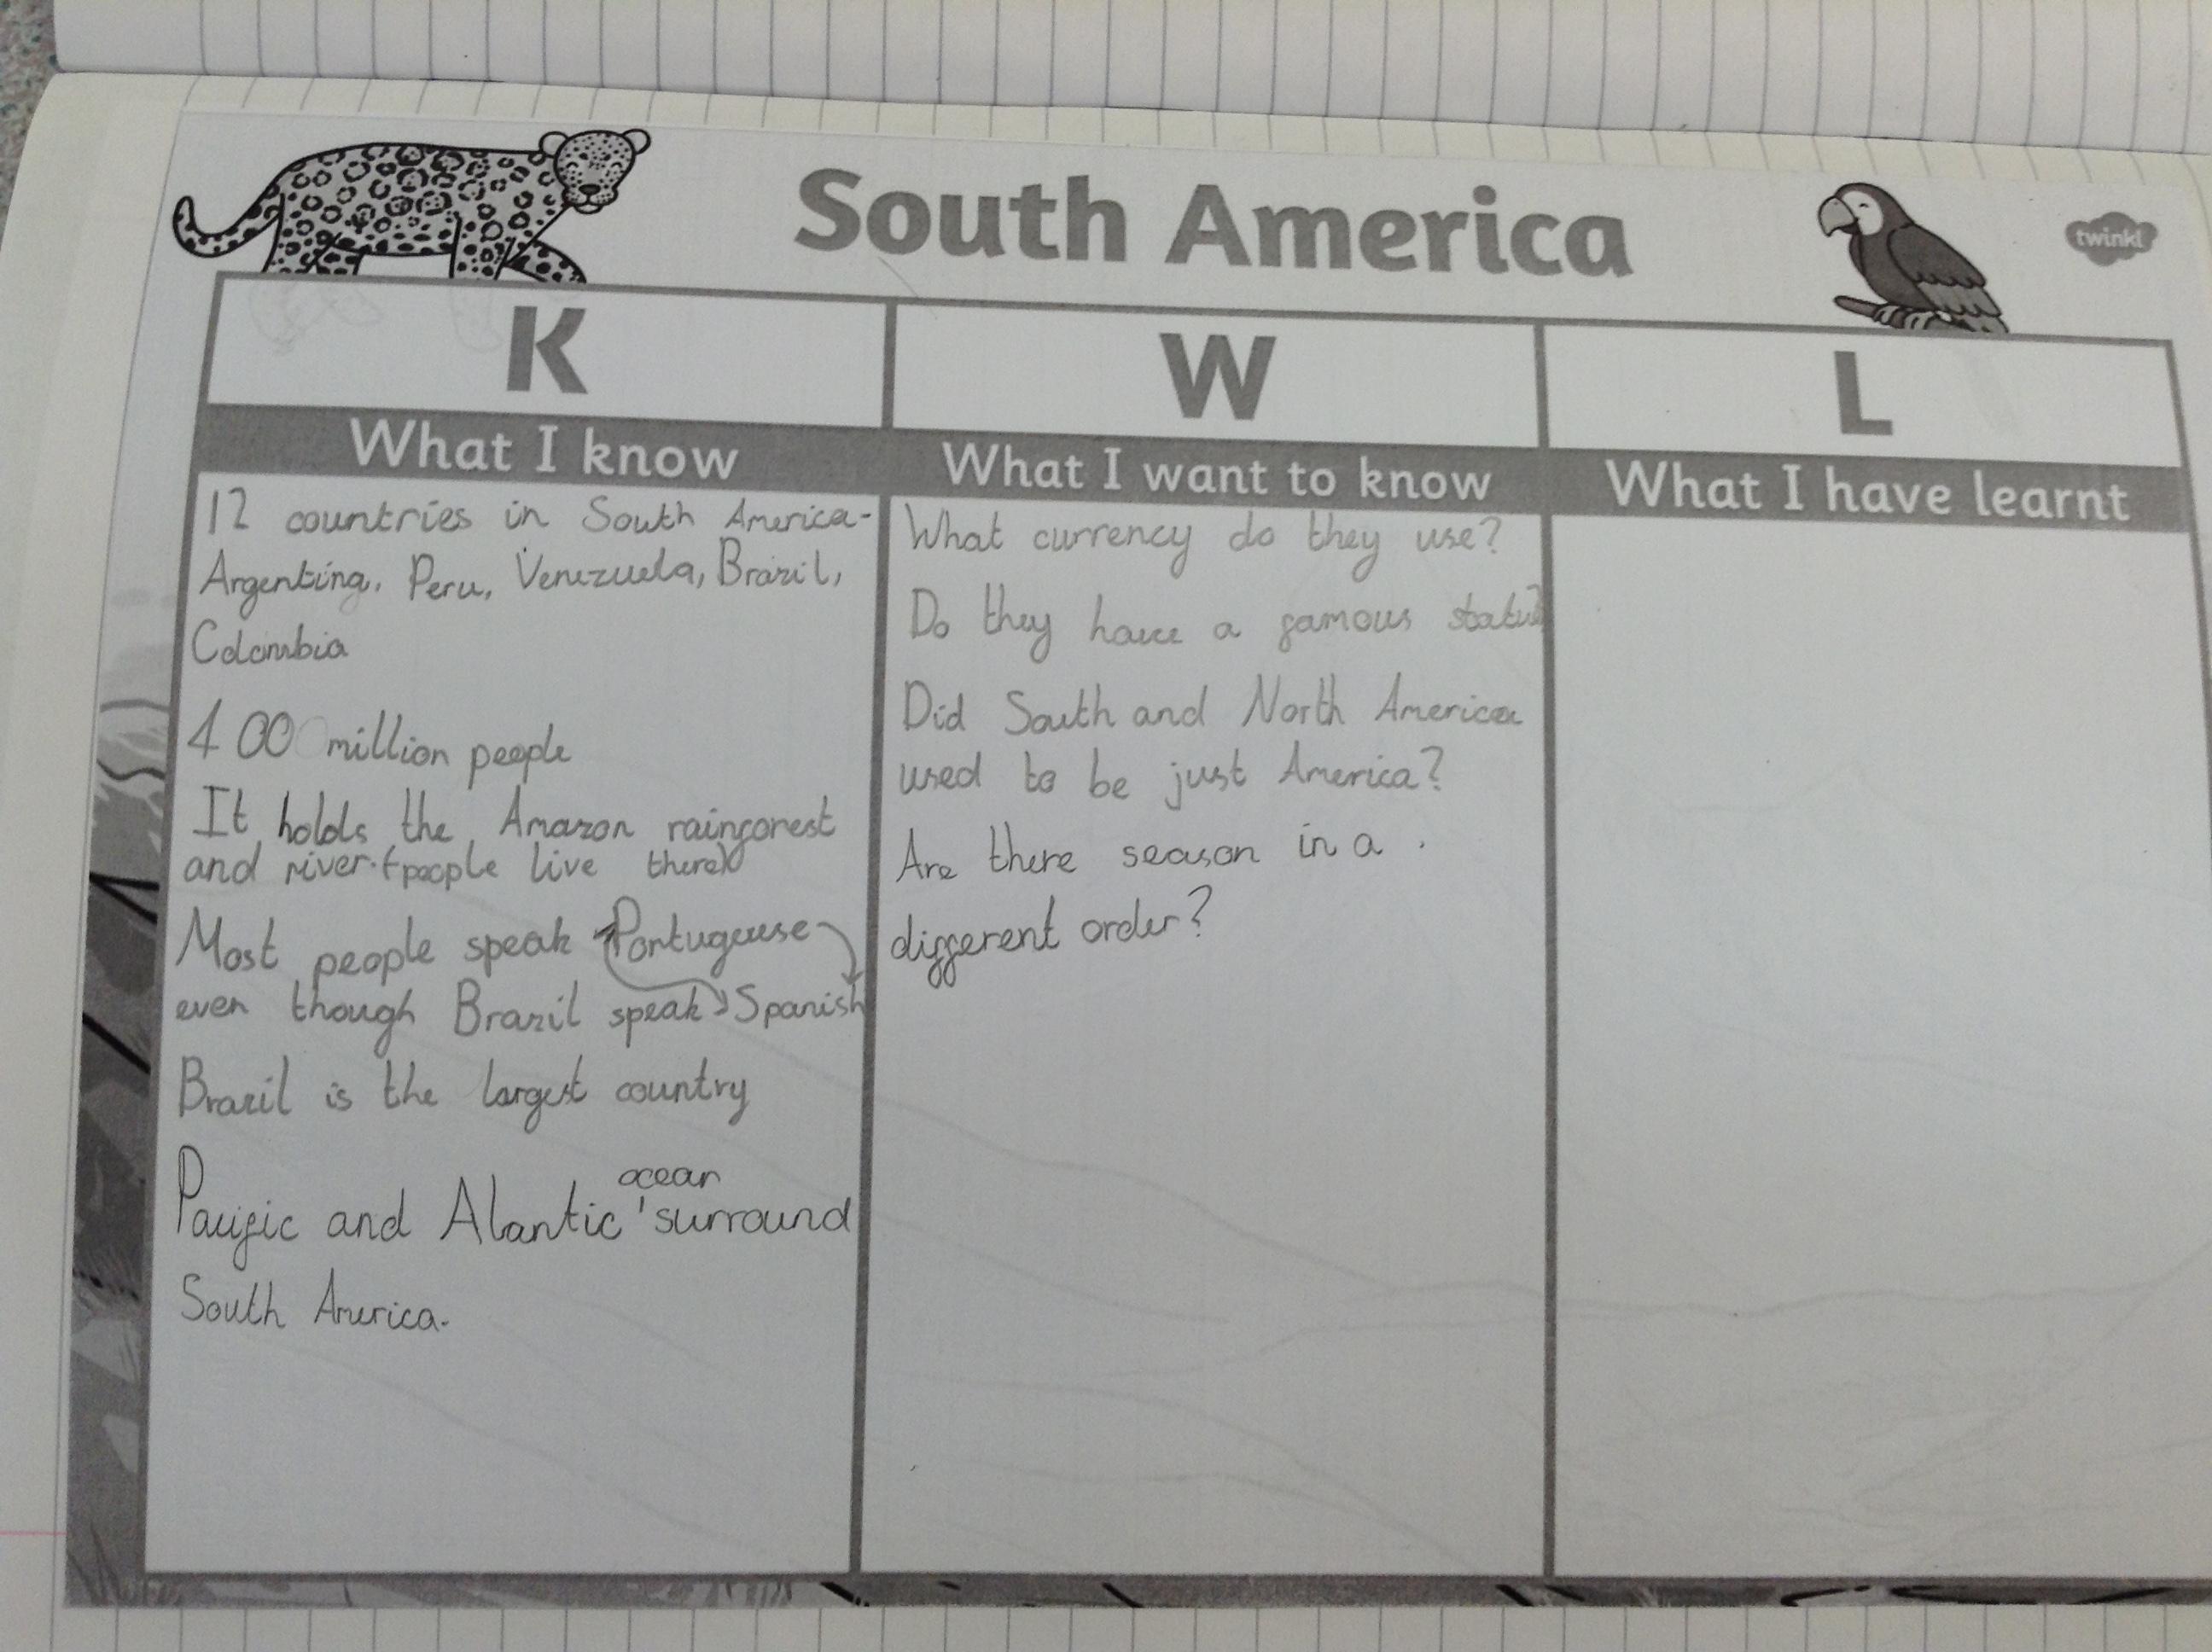 South America
twinkl
K
What I know
12 countries in South America-
Argentina, Peru, Venezuela, Brazil,
Colombia
400 million people
It holds the Amazon rainforest
and river. (people live there)
Most people speak Portugeuse
even though Brazil speak Spanish
Brazil is the largest country
ocean
Pacific and Alantic surround
South America.
W
What I want to know
What currency do they use?
Do they have a famous statue?
Did South and North America
used to be just America?
Are there season in a
different order?
L
What I have learnt